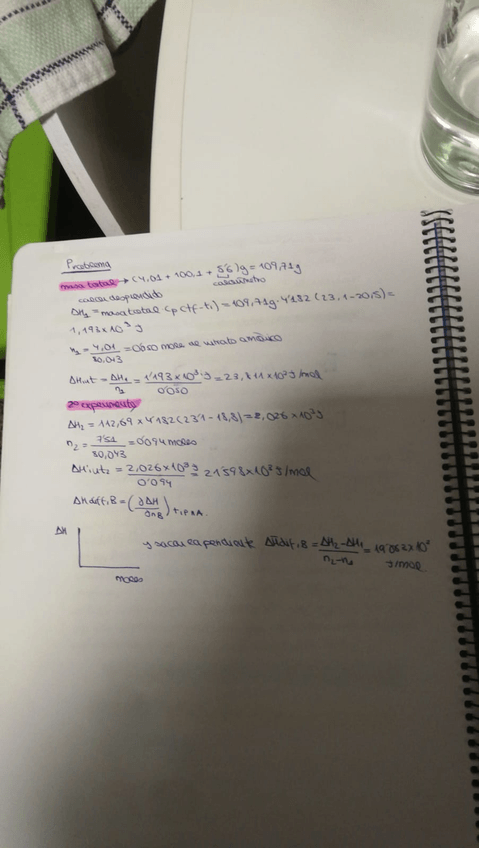 Problema
masa total → (4,01 + 100,1 + 5'6)g = 109,71g
calorímetro
calor desprendido
ΔH₁ = masa total Cp (tf - ti) = 109,71g · 4'182 (23,1 - 20,5) =
1,193 x 10³ J
n₁ = 4,01 / 80,043 = 0'050 moles de nitrato amónico
ΔH int = ΔH₁ / n₁ = 1'193 x 10³ J / 0'050 = 23,811 x 10³ J/mol
2º experimento
ΔH₂ = 112,69 x 4'182 (23'1 - 18,8) = 2,026 x 10³ J
n₂ = 7'51 / 80,043 = 0'094 moles
ΔH int₂ = 2,026 x 10³ J / 0'094 = 21'598 x 10³ J/mol
ΔH dif,B = (∂ΔH / ∂n_B) T,P,n_A
ΔH
y sacar la pendiente ΔH dif,B = ΔH₂ - ΔH₁ / n₂ - n₁ = 19'062 x 10³ J/mol
moles